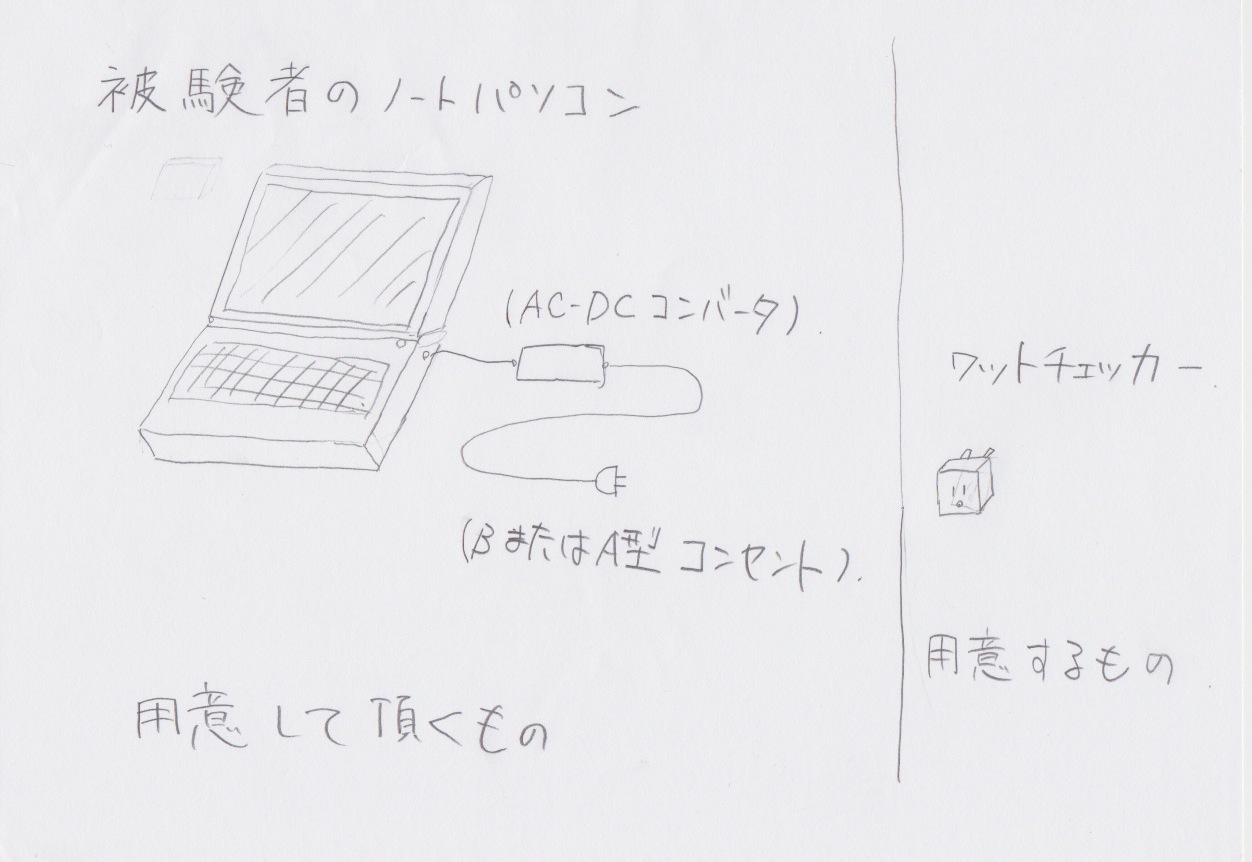 被験者のノートパソコン
(AC-DCコンバータ)
(BまたはA型コンセント).
用意して頂くもの
ワットチェッカー.
用意するもの.